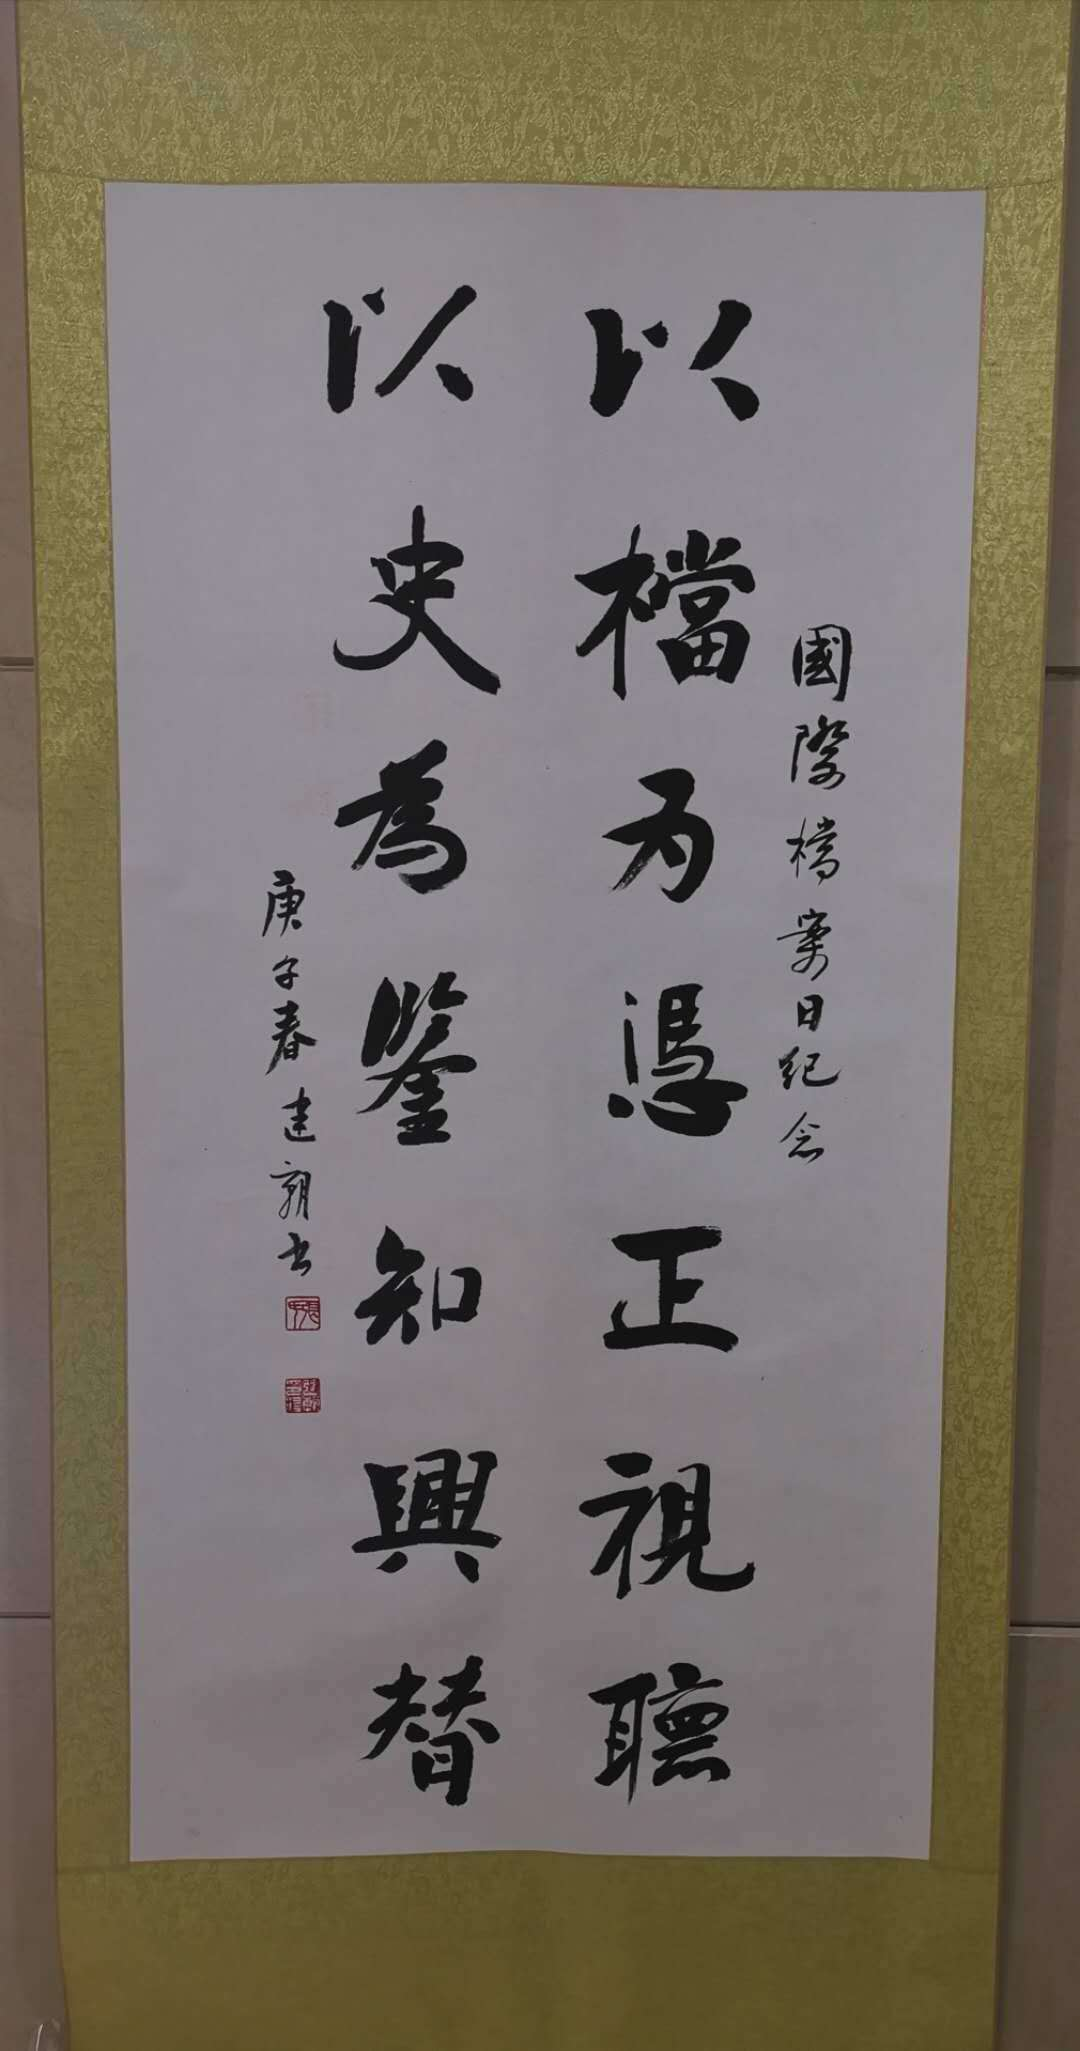 國際檔案日纪念
以檔为憑正視聽
以史為鑒知興替
庚子春建朝书